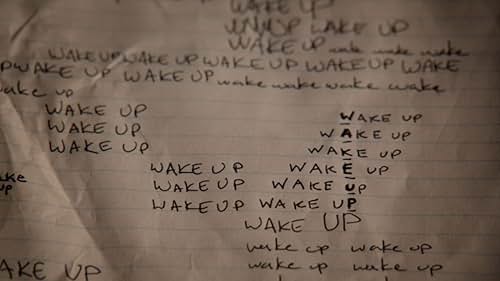 WAKE UP
WAKE UP
WAKE UP wake wake wake
WAKE UP WAKE UP WAKE UP WAKE UP WAKE
WAKE UP WAKE UP wake wake wake wake
wake up
WAKE UP WAKE UP
WAKE UP WAKE UP
WAKE UP WAKE UP
WAKE UP WAKE UP
WAKE UP WAKE UP
UP
WAKE UP WAKE UP
WAKE UP
wake up wake up
WAKE UP wake up wake up